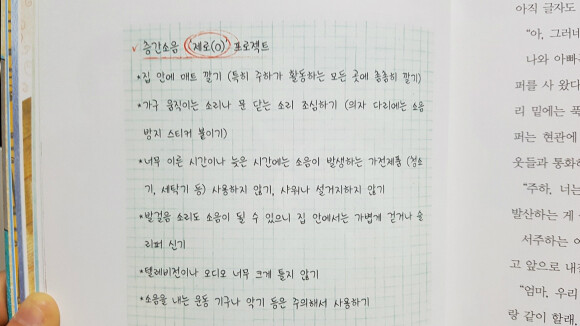 ✓ 층간소음 '제로(0)' 프로젝트
*집 안에 매트 깔기 (특히 주하가 활동하는 모든 곳에 촘촘히 깔기)
*가구 움직이는 소리나 문 닫는 소리 조심하기 (의자 다리에는 소음
방지 스티커 붙이기)
*너무 이른 시간이나 늦은 시간에는 소음이 발생하는 가전제품 (청소
기, 세탁기 등) 사용하지 않기, 샤워나 설거지하지 않기
*발걸음 소리도 소음이 될 수 있으니 집 안에서는 가볍게 걷거나 슬
리퍼 신기
*텔레비전이나 오디오 너무 크게 틀지 않기
*소음을 내는 운동 기구나 악기 등은 주의해서 사용하기
아직 글자도
"아, 그러네
나와 아빠는
퍼를 사 왔다
리 밑에는 푹
퍼는 현관에
웃들과 통화하
"주하, 너는
발산하는 게
서주하는 어
고 앞으로 내
"엄마, 우리
랑 같이 할래,